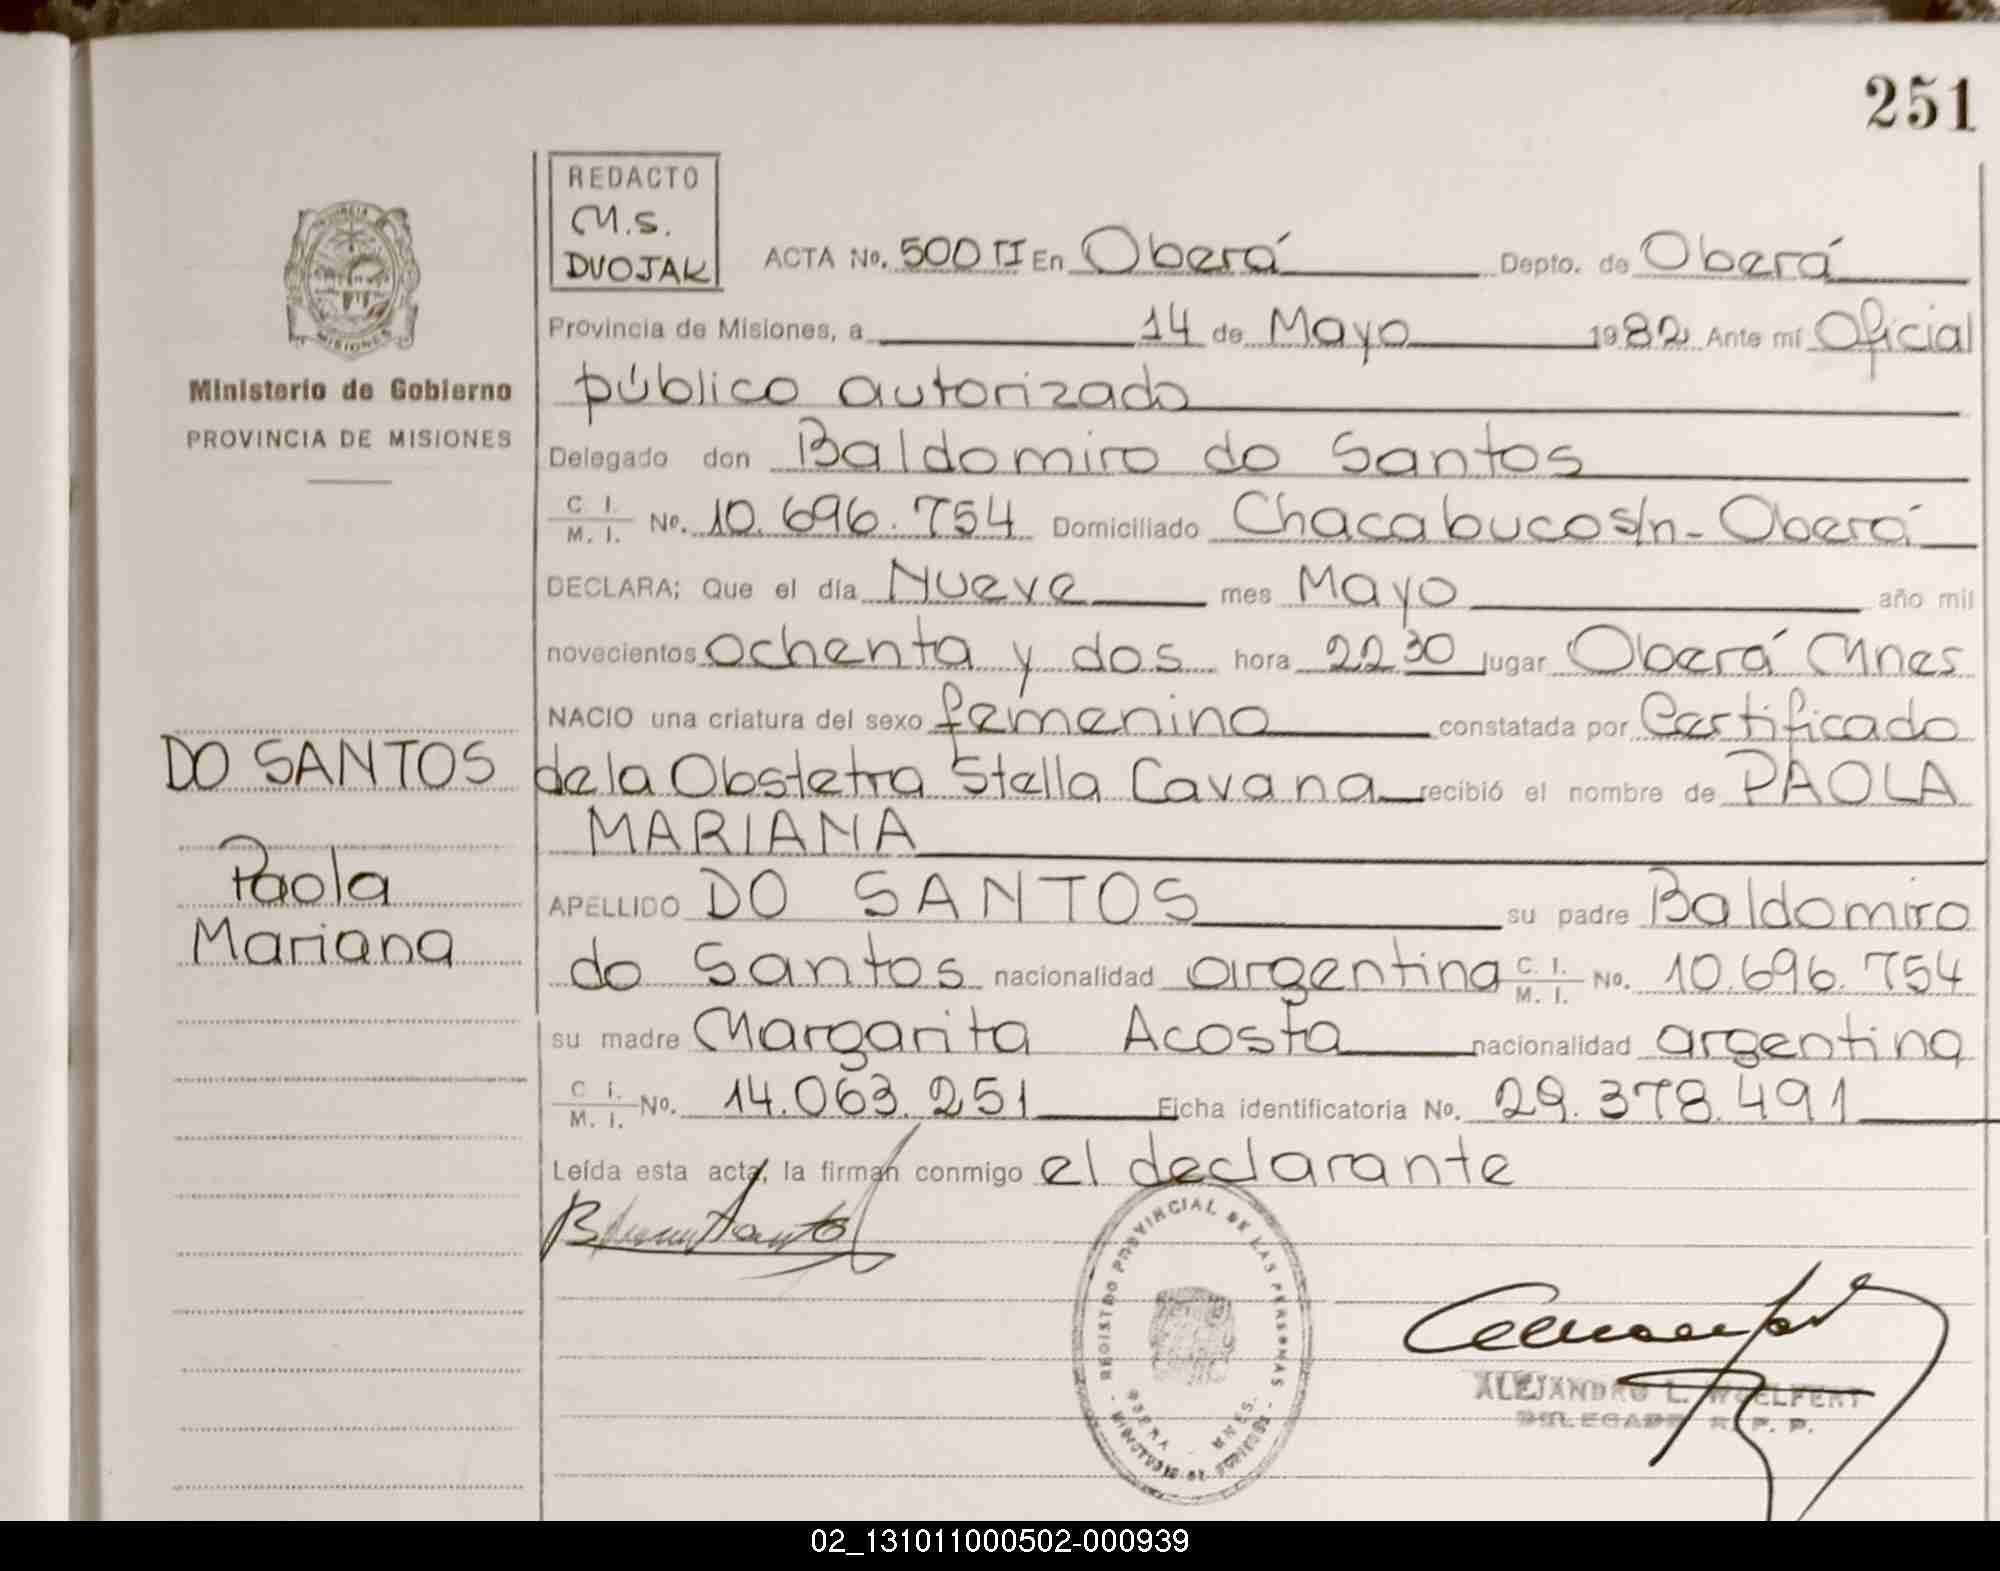 251
REDACTO
M.S.
DVOJAK
ACTA No. 500 II En Oberá Depto. de Oberá
Provincia de Misiones, a 14 de Mayo 1982 Ante mí Oficial
público autorizado
Delegado don Baldomiro do Santos
C. I. / M. I. No. 10.696.754 Domiciliado Chacabuco s/n - Oberá
DECLARA; Que el día Nueve mes Mayo año mil
novecientos ochenta y dos hora 22 30 lugar Oberá Mnes
NACIO una criatura del sexo femenino constatada por Certificado
de la Obstetra Stella Cavana recibió el nombre de PAOLA
MARIANA
APELLIDO DO SANTOS su padre Baldomiro
do Santos nacionalidad argentina C. I. / M. I. No. 10.696.754
su madre Margarita Acosta nacionalidad argentina
C. I. / M. I. No. 14.063.251 Ficha identificatoria No. 29.378.491
Leída esta acta, la firman conmigo el declarante
PROVINCIA
MISIONES
Ministerio de Gobierno
PROVINCIA DE MISIONES
DO SANTOS
Paola
Mariana
REGISTRO PROVINCIAL DE LAS PERSONAS
OBERA - MNES.
MINISTERIO DE GOBIERNO
ALEJANDRO L. WOELFERT
DELEGADO R. P. P.
02_131011000502-000939